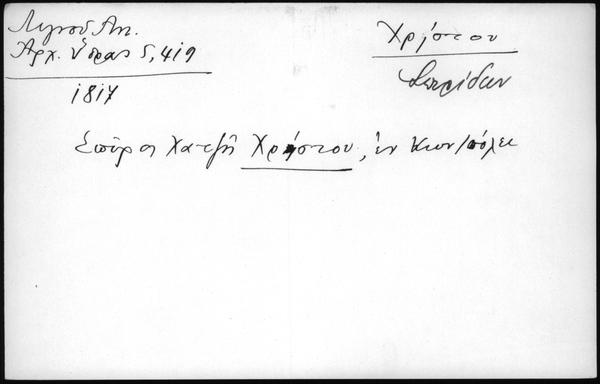 Λιγνοῦ Ἀπ.
Ἀρχ. Ὕδρας 5, 419
1817
Χρήστου
Σπυρίδων
Σπύρος Χατζῆ Χρήστου, ἐν Κων/πόλει